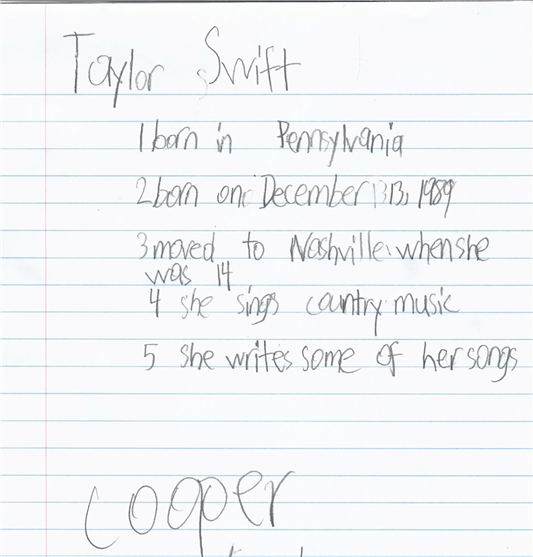 Taylor Swift
1 born in Pennsylvania
2 born on December 13, 1989
3 moved to Nashville when she
was 14
4 she sings country music
5 she writes some of her songs
Cooper